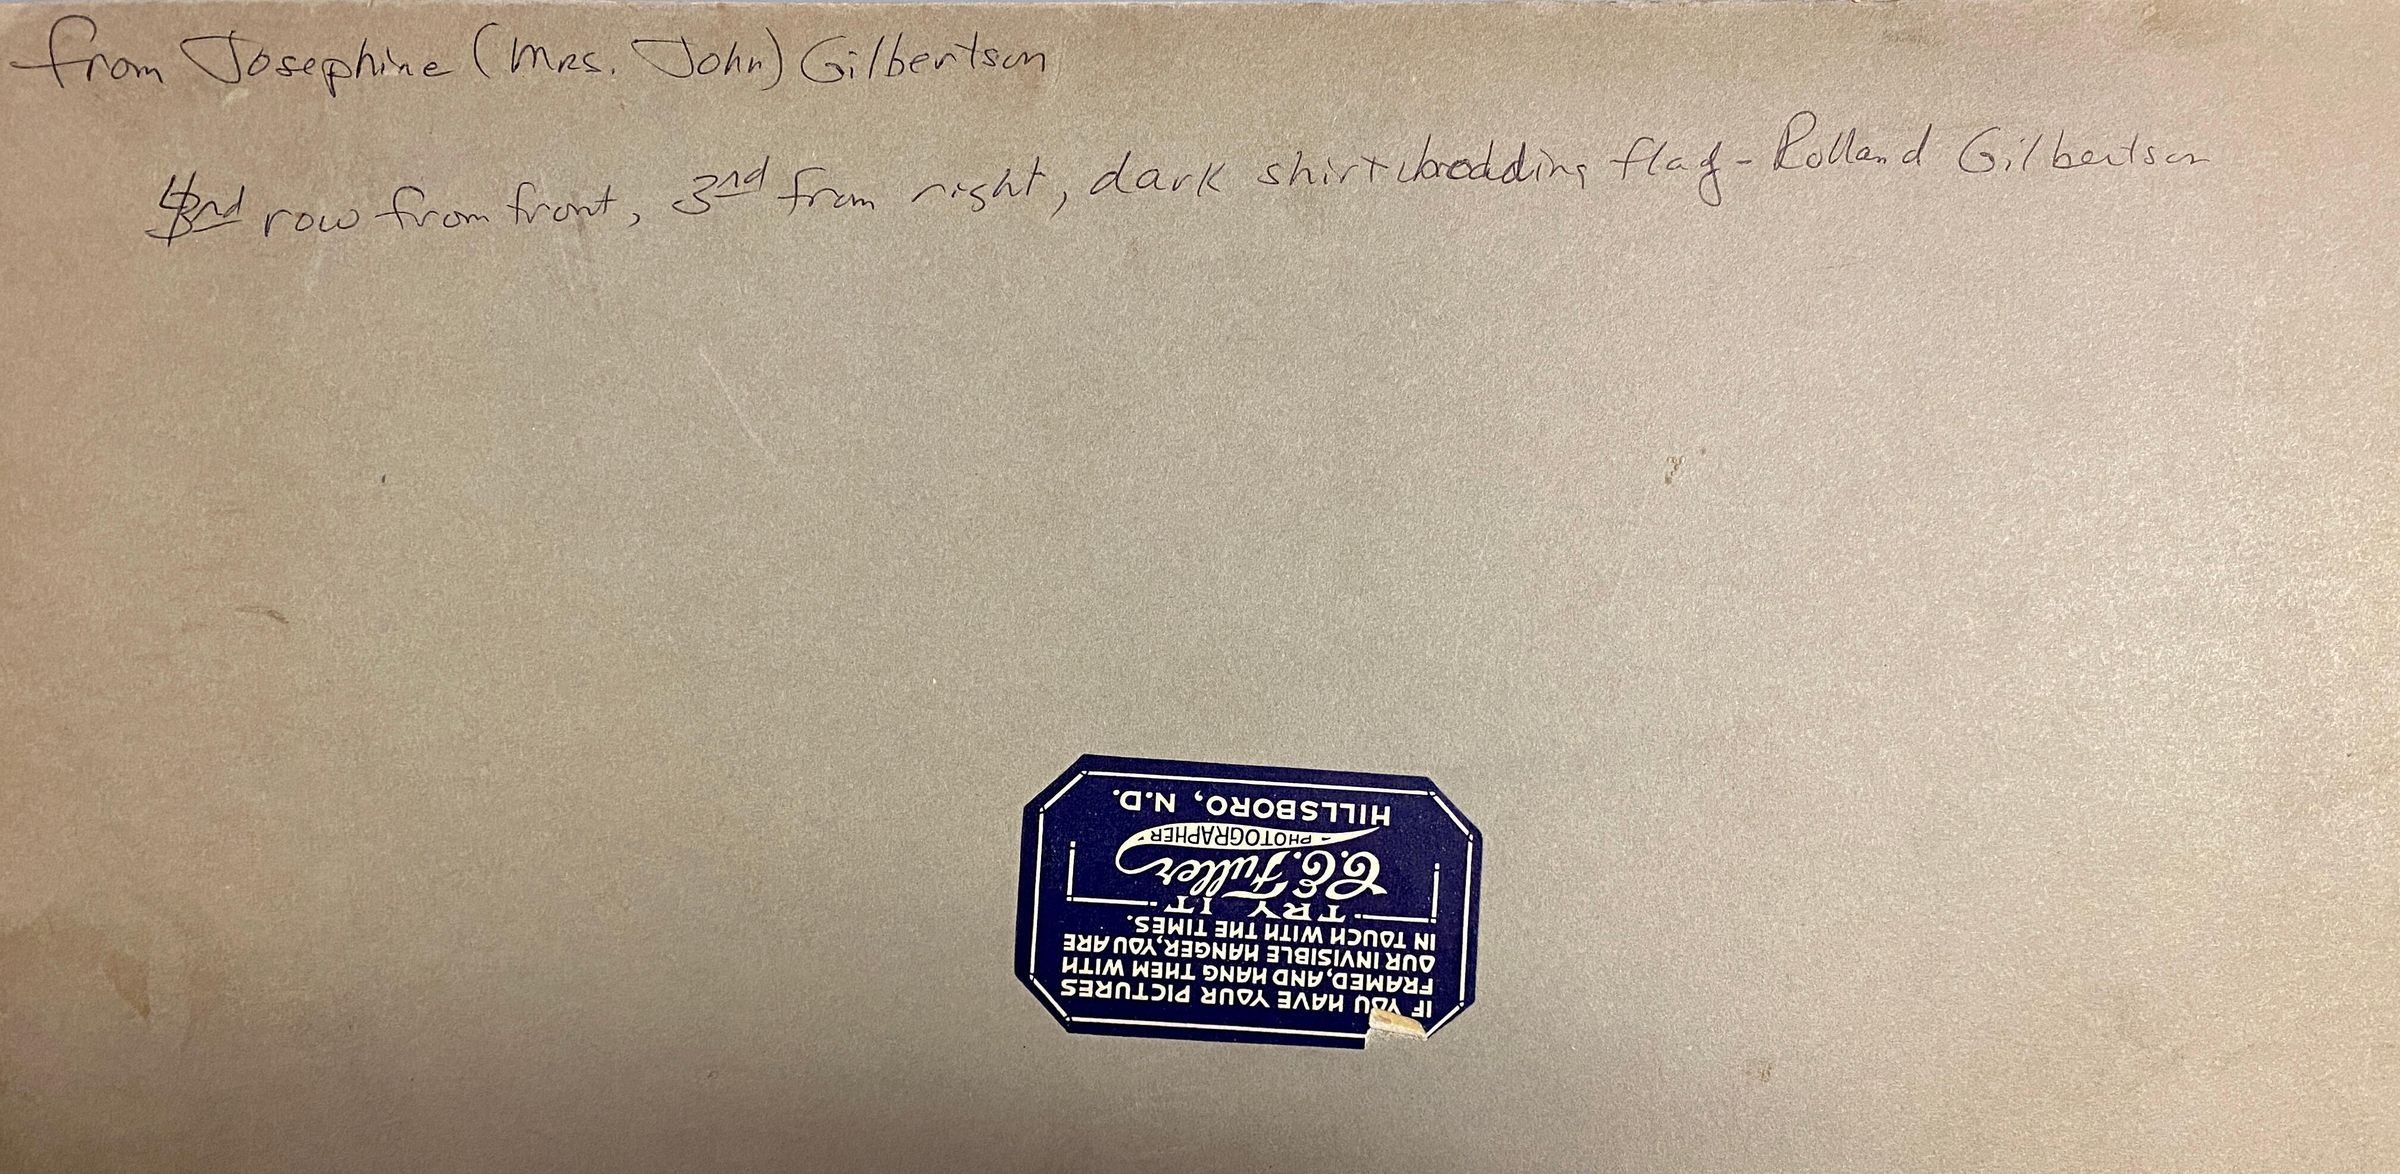 from Josephine (Mrs. John) Gilbertson
row from front, 3nd from right, dark shirt holding flag - Rolland Gilbertson
IF YOU HAVE YOUR PICTURES
FRAMED, AND HANG THEM WITH
OUR INVISIBLE HANGER, YOU ARE
IN TOUCH WITH THE TIMES.
TRY IT
C.E. Fuller
- PHOTOGRAPHER -
HILLSBORO, N.D.